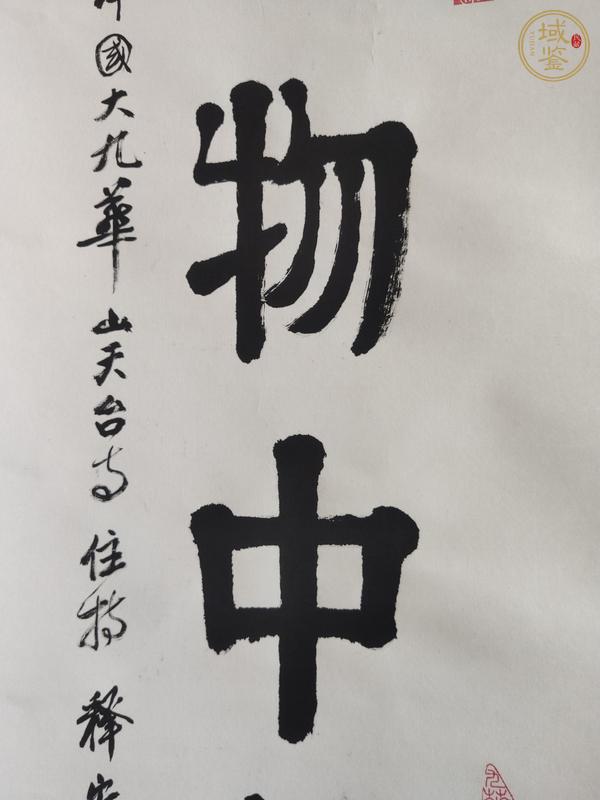 物中
中國大九華山天台寺住持釋宏
域鉴
YUJIAN